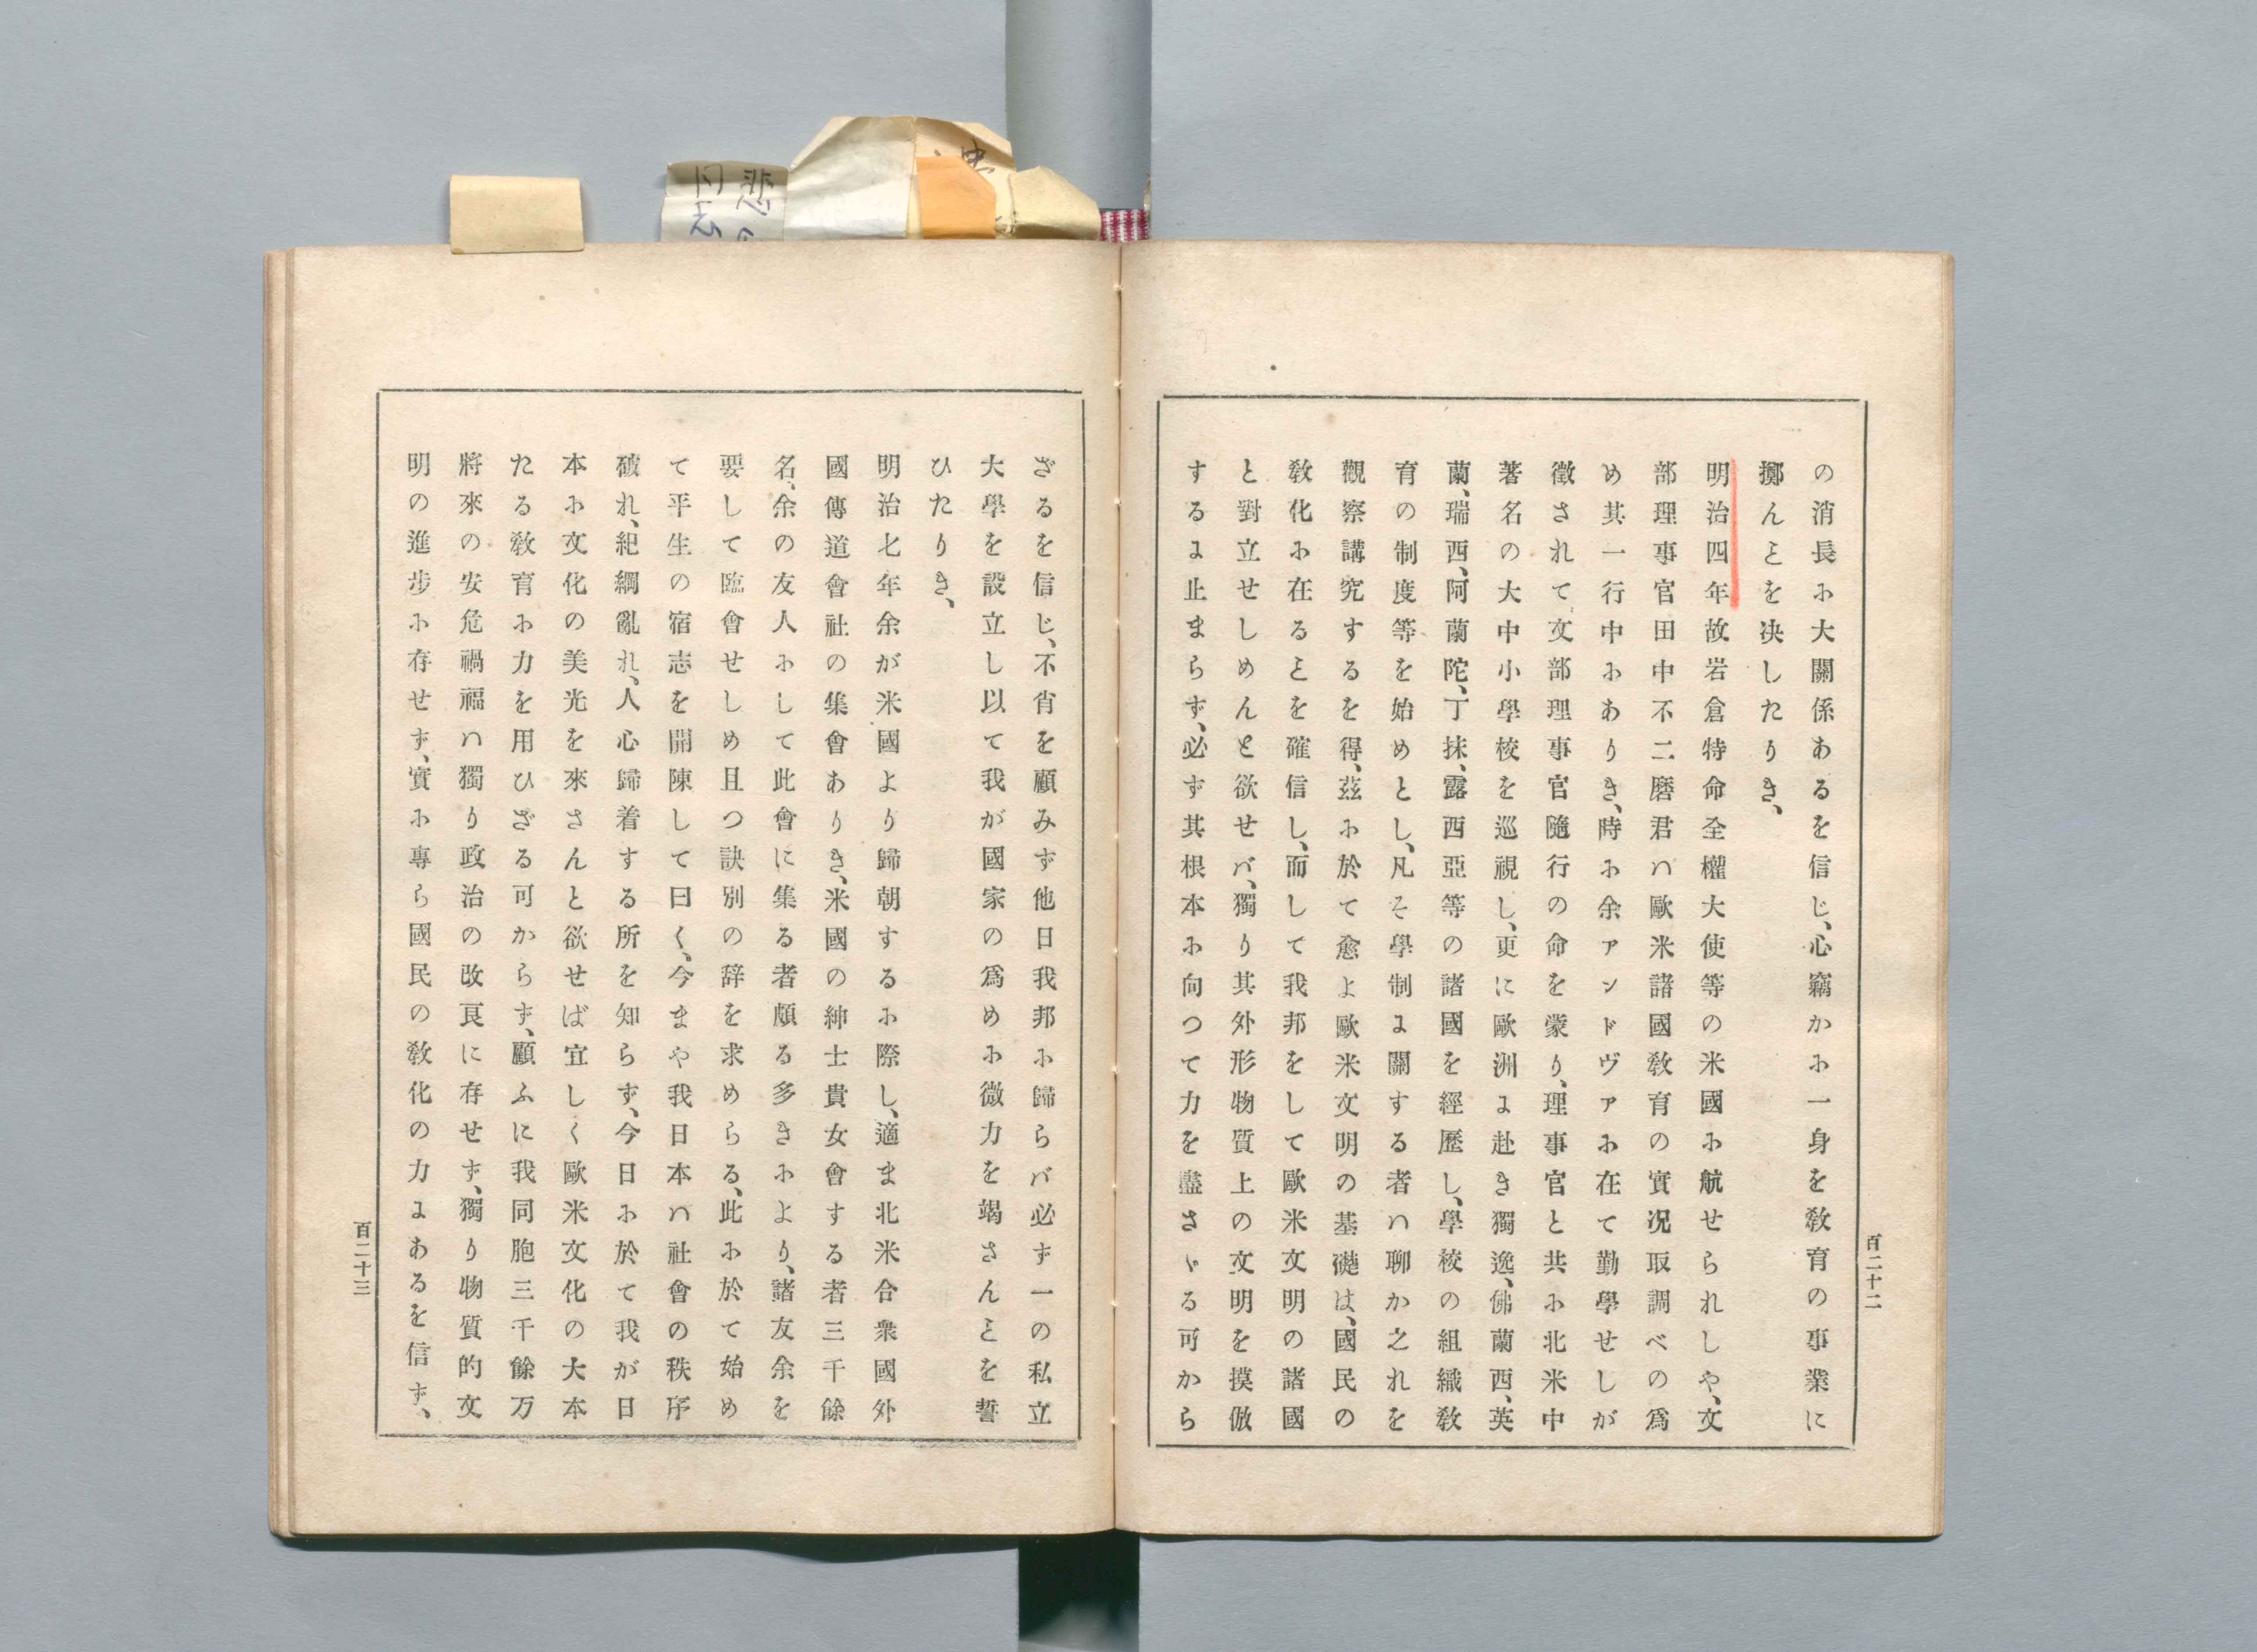 の消長に大關係あるを信じ、心竊かに一身を敎育の事業に
擲んとを决したりき、
明治四年故岩倉特命全權大使等の米國に航せられしや、文
部理事官田中不二麿君ハ歐米諸國敎育の實况取調べの爲
め其一行中にありき、時に余アンドヴァに在て勤學せしが
徵されて文部理事官隨行の命を蒙り、理事官と共に北米中
著名の大中小學校を巡視し、更に歐洲に赴き獨逸、佛蘭西、英
蘭、瑞西、阿蘭陀、丁抹、露西亞等の諸國を經歷し、學校の組織敎
育の制度等を始めとし、凡そ學制に關する者ハ聊か之れを
觀察講究するを得、茲に於て愈よ歐米文明の基礎は、國民の
敎化に在るとを確信し、而して我邦をして歐米文明の諸國
と對立せしめんと欲せバ、獨り其外形物質上の文明を摸倣
するに止まらず、必ず其根本に向つて力を盡さゞる可から
百二十二
ざるを信じ、不肖を顧みず他日我邦に歸らバ必ず一の私立
大學を設立し以て我が國家の爲めに微力を竭さんとを誓
ひたりき、
明治七年余が米國より歸朝するに際し、適ま北米合衆國外
國傳道會社の集會ありき、米國の紳士貴女會する者三千餘
名、余の友人にして此會に集る者頗る多きにより、諸友余を
要して臨會せしめ且つ訣別の辞を求めらる、此に於て始め
て平生の宿志を開陳して曰く、今まや我日本ハ社會の秩序
破れ、紀綱亂れ、人心歸着する所を知らず、今日に於て我が日
本に文化の美光を來さんと欲せば宜しく歐米文化の大本
たる敎育に力を用ひざる可からず、顧ふに我同胞三千餘万
將來の安危禍福ハ獨り政治の改良に存せず、獨り物質的文
明の進步に存せず、實に專ら國民の敎化の力にあるを信ず、
百二十三